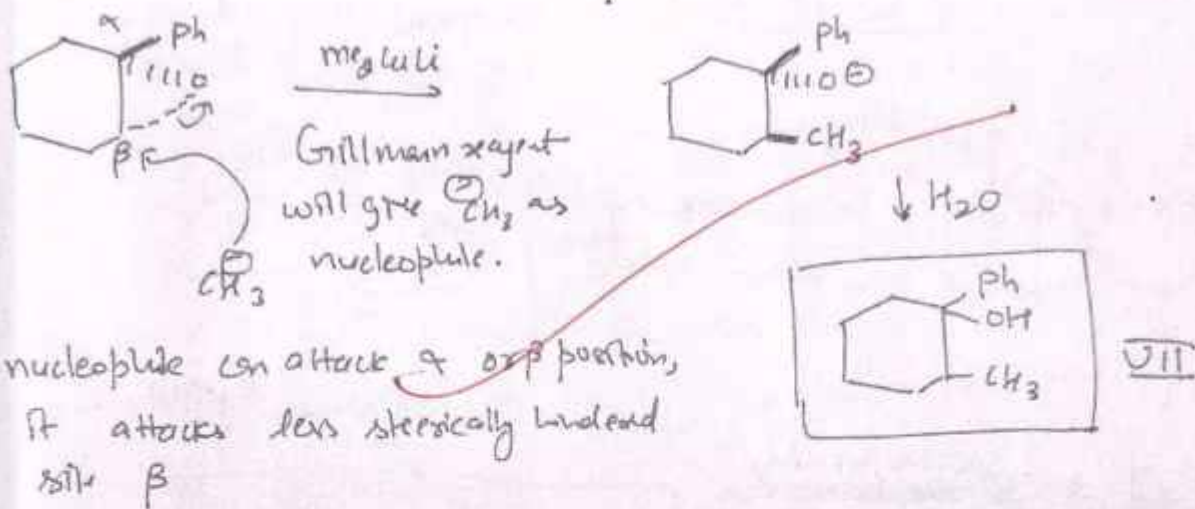 α
Ph
O
Me2CuLi
Ph
O⊖
β
CH3
Gillmann reagent
will give ⊖CH3 as
nucleophile.
⊖CH3
↓ H2O
Ph
OH
CH3
VII
nucleophile can attack α or β position,
it attacks less sterically hindered
site β